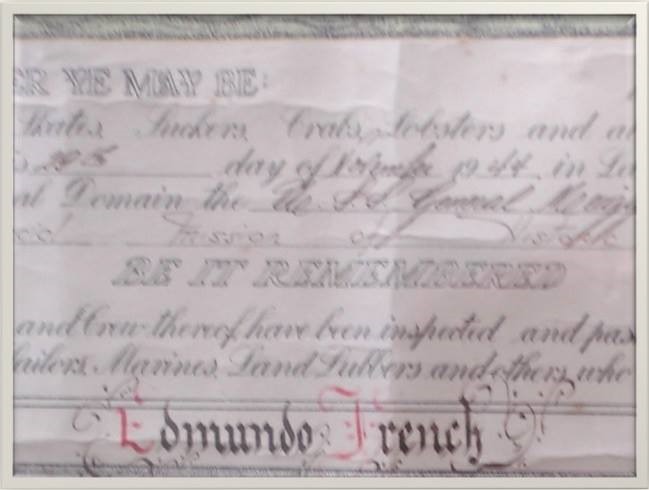 ER YE MAY BE:
Skates, Suckers, Crabs, Lobsters and a
20th day of November 1944 in L
al Domain the U. S. S. General
Mission of
BE IT REMEMBERED
and Crew thereof have been inspected and pas
Sailors, Marines, Land Lubbers and others who
Edmundo French